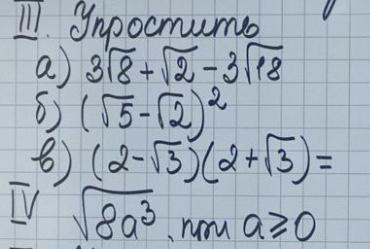 III. Упростить
а) 3√8 + √2 - 3√18
б) (√5 - √2)²
в) (2 - √3)(2 + √3) =
IV √8a³, при a ≥ 0